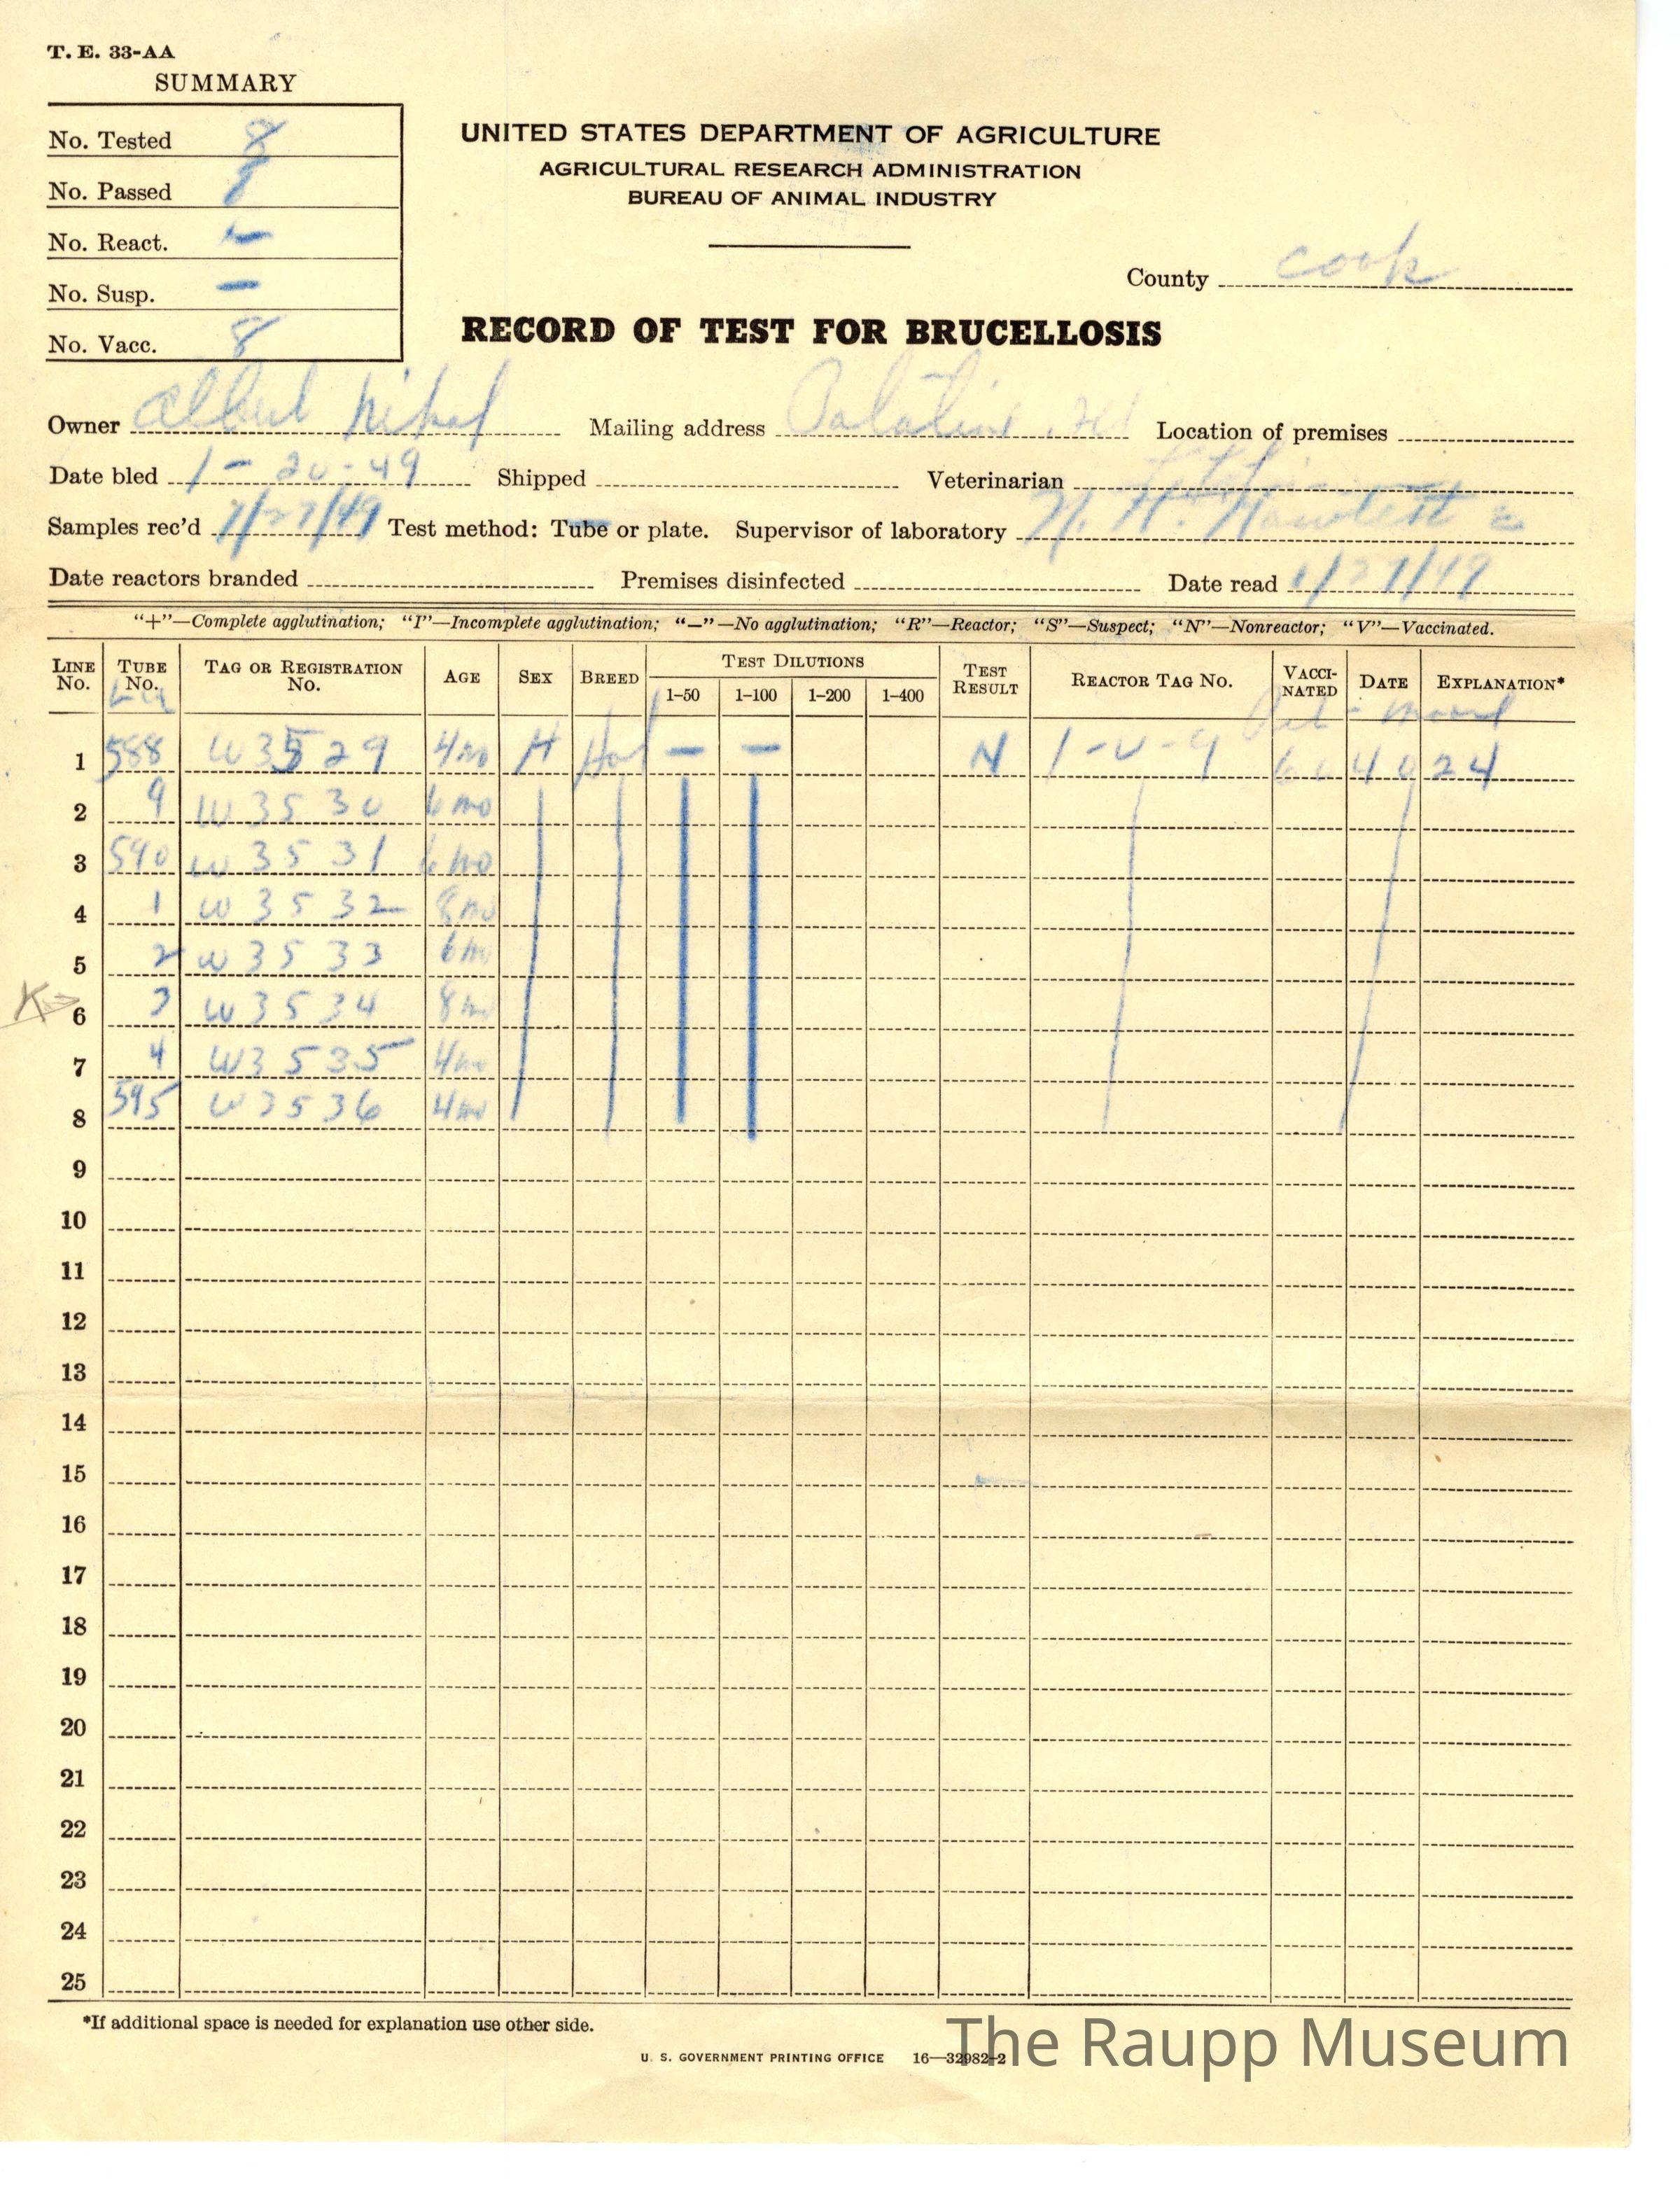 T. E. 33-AA
SUMMARY
No. Tested 8
No. Passed
No. React. -
No. Susp. -
No. Vacc. 8
UNITED STATES DEPARTMENT OF AGRICULTURE
AGRICULTURAL RESEARCH ADMINISTRATION
BUREAU OF ANIMAL INDUSTRY
County Cook
RECORD OF TEST FOR BRUCELLOSIS
Owner Albert Mailing address Palatine Ill Location of premises
Date bled 1-20-49 Shipped Veterinarian
Samples rec'd 1/27/49 Test method: Tube or plate. Supervisor of laboratory N. H.
Date reactors branded Premises disinfected Date read 1/27/49
"+"—Complete agglutination; "I"—Incomplete agglutination; "—"—No agglutination; "R"—Reactor; "S"—Suspect; "N"—Nonreactor; "V"—Vaccinated.
LINE No. TUBE No. TAG OR REGISTRATION No. AGE SEX BREED TEST DILUTIONS 1-50 1-100 1-200 1-400 TEST RESULT REACTOR TAG NO. VACCINATED DATE EXPLANATION*
1 588 W3529 4mo H Hol - - N 1-V-9 4024
2 9 W3530 6mo
3 590 W3531 6mo
4 1 W3532 8mo
5 2 W3533 6mo
K 6 3 W3534 8mo
7 4 W3535 4mo
8 595 W3536 4mo
9
10
11
12
13
14
15
16
17
18
19
20
21
22
23
24
25
*If additional space is needed for explanation use other side.
U. S. GOVERNMENT PRINTING OFFICE 16—32982-2
The Raupp Museum